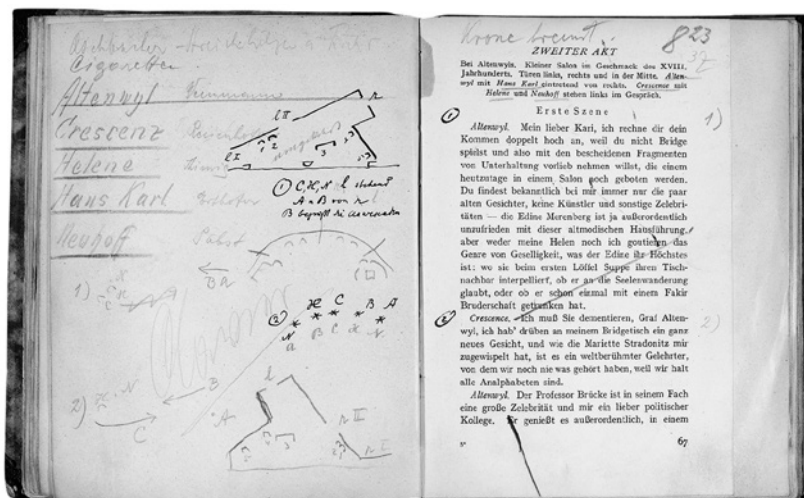 Cigaretten.
Altenwyl
Crescenz
Helene
Hans Karl
Neuhoff
Pabst
l II
r
l I
1 C, H, N l stehend
A + B von r
B
1)
2)
2
H C B A
B C
A
l
r II
r I
Krone brennt.
823
ZWEITER AKT
Bei Altenwyls. Kleiner Salon im Geschmack des XVIII.
Jahrhunderts. Türen links, rechts und in der Mitte. Alten-
wyl mit Hans Karl eintretend von rechts. Crescence mit
Helene und Neuhoff stehen links im Gespräch.
Erste Szene
1 1)
Altenwyl. Mein lieber Kari, ich rechne dir dein
Kommen doppelt hoch an, weil du nicht Bridge
spielst und also mit den bescheidenen Fragmenten
von Unterhaltung vorlieb nehmen willst, die einem
heutzutage in einem Salon noch geboten werden.
Du findest bekanntlich bei mir immer nur die paar
alten Gesichter, keine Künstler und sonstige Zelebri-
täten — die Edine Merenberg ist ja außerordentlich
unzufrieden mit dieser altmodischen Hausführung,
aber weder meine Helen noch ich goutieren das
Genre von Geselligkeit, was der Edine ihr Höchstes
ist: wo sie beim ersten Löffel Suppe ihren Tisch-
nachbar interpelliert, ob er an die Seelenwanderung
glaubt, oder ob er schon einmal mit einem Fakir
Bruderschaft getrunken hat.
2 2)
Crescence. Ich muß Sie dementieren, Graf Alten-
wyl, ich hab' drüben an meinem Bridgetisch ein ganz
neues Gesicht, und wie die Mariette Stradonitz mir
zugewispelt hat, ist es ein weltberühmter Gelehrter,
von dem wir noch nie was gehört haben, weil wir halt
alle Analphabeten sind.
Altenwyl. Der Professor Brücke ist in seinem Fach
eine große Zelebrität und mir ein lieber politischer
Kollege. Er genießt es außerordentlich, in einem
67